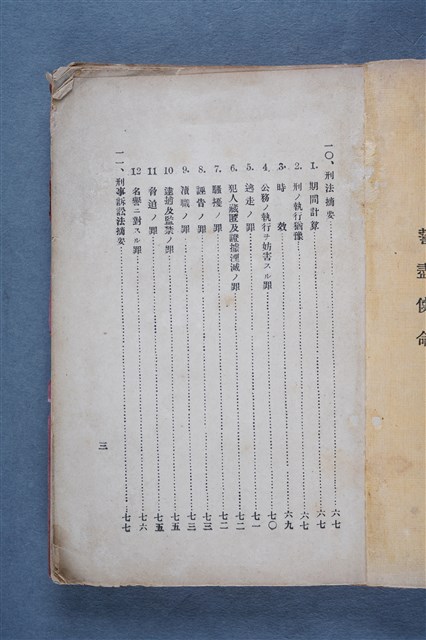 誓盡使命
一〇、刑法摘要……六七
1. 期間計算……六七
2. 刑ノ執行猶豫……六七
3. 時效……六九
4. 公務ノ執行ヲ妨害スル罪……七〇
5. 逃走ノ罪……七一
6. 犯人藏匿及證據湮滅ノ罪……七二
7. 騷擾ノ罪……七二
8. 誣告ノ罪……七三
9. 瀆職ノ罪……七三
10 逮捕及監禁ノ罪……七五
11 脅迫ノ罪……七五
12 名譽ニ對スル罪……七六
一一、刑事訴訟法摘要……七七
三